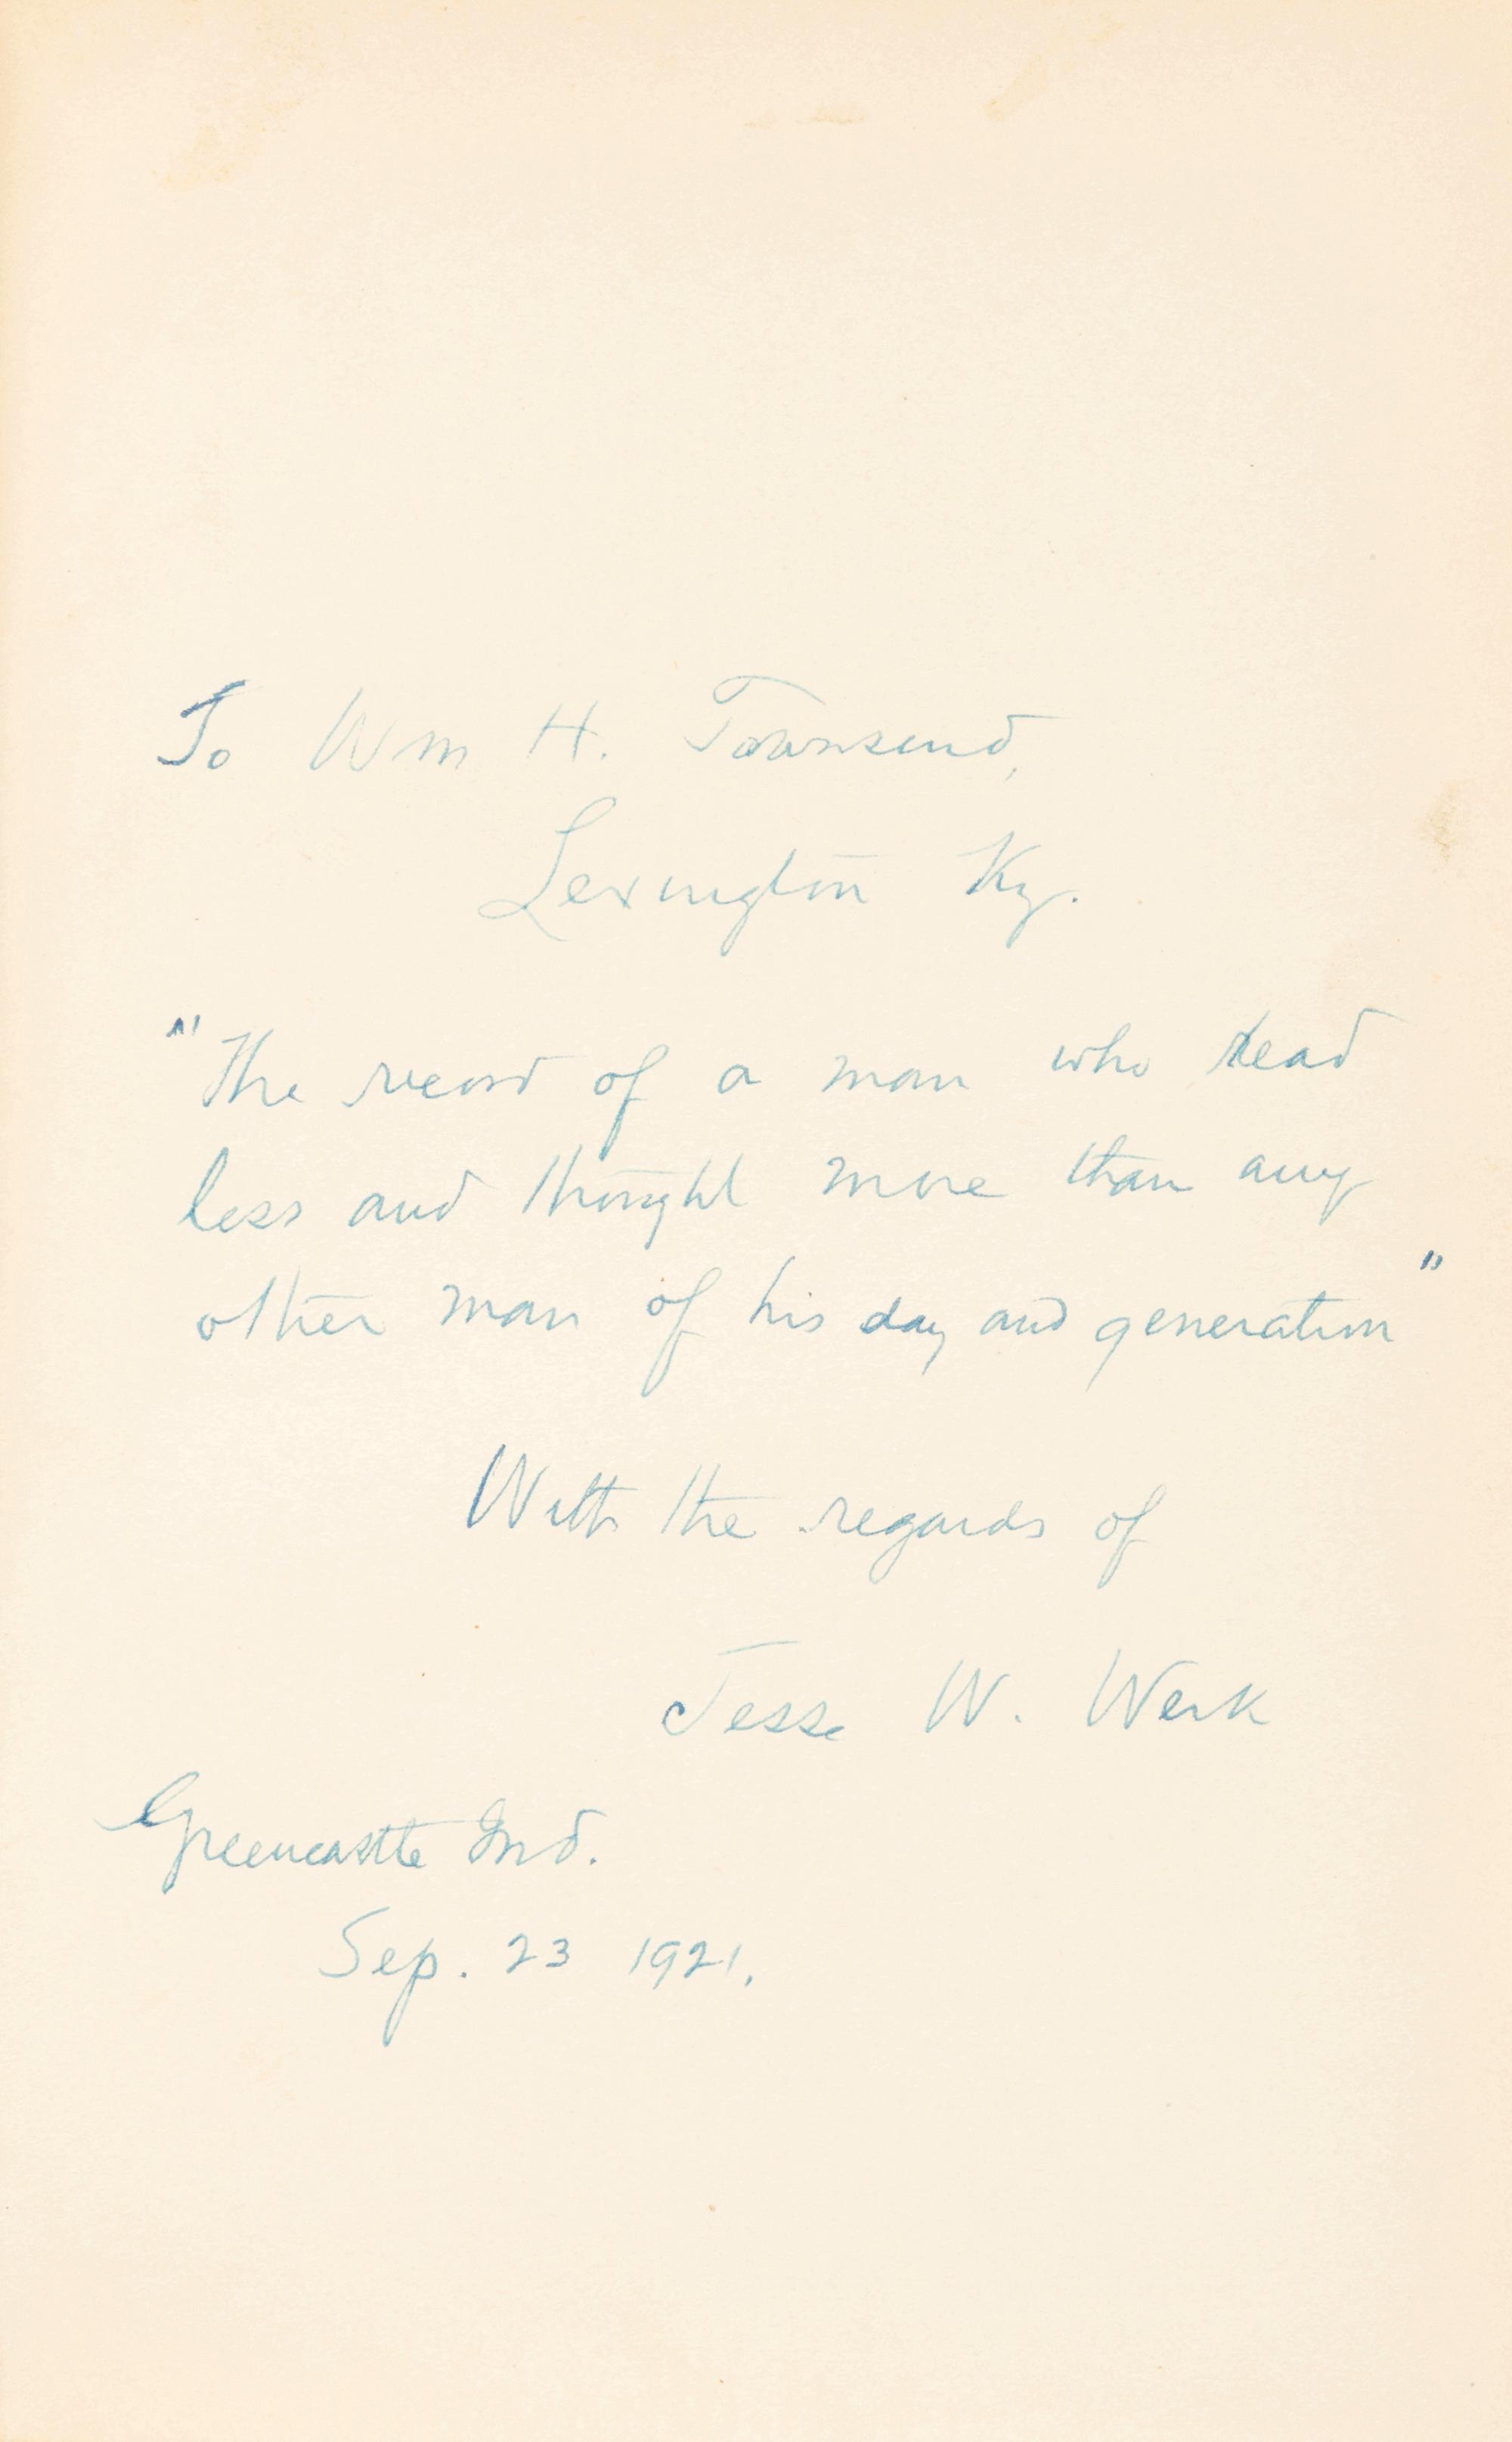 To Wm H. Townsend,
Lexington Ky.
"The record of a man who read
less and thought more than any
other man of his day and generation"
With the regards of
Jesse W. Weik
Greencastle Ind.
Sep. 23 1921.